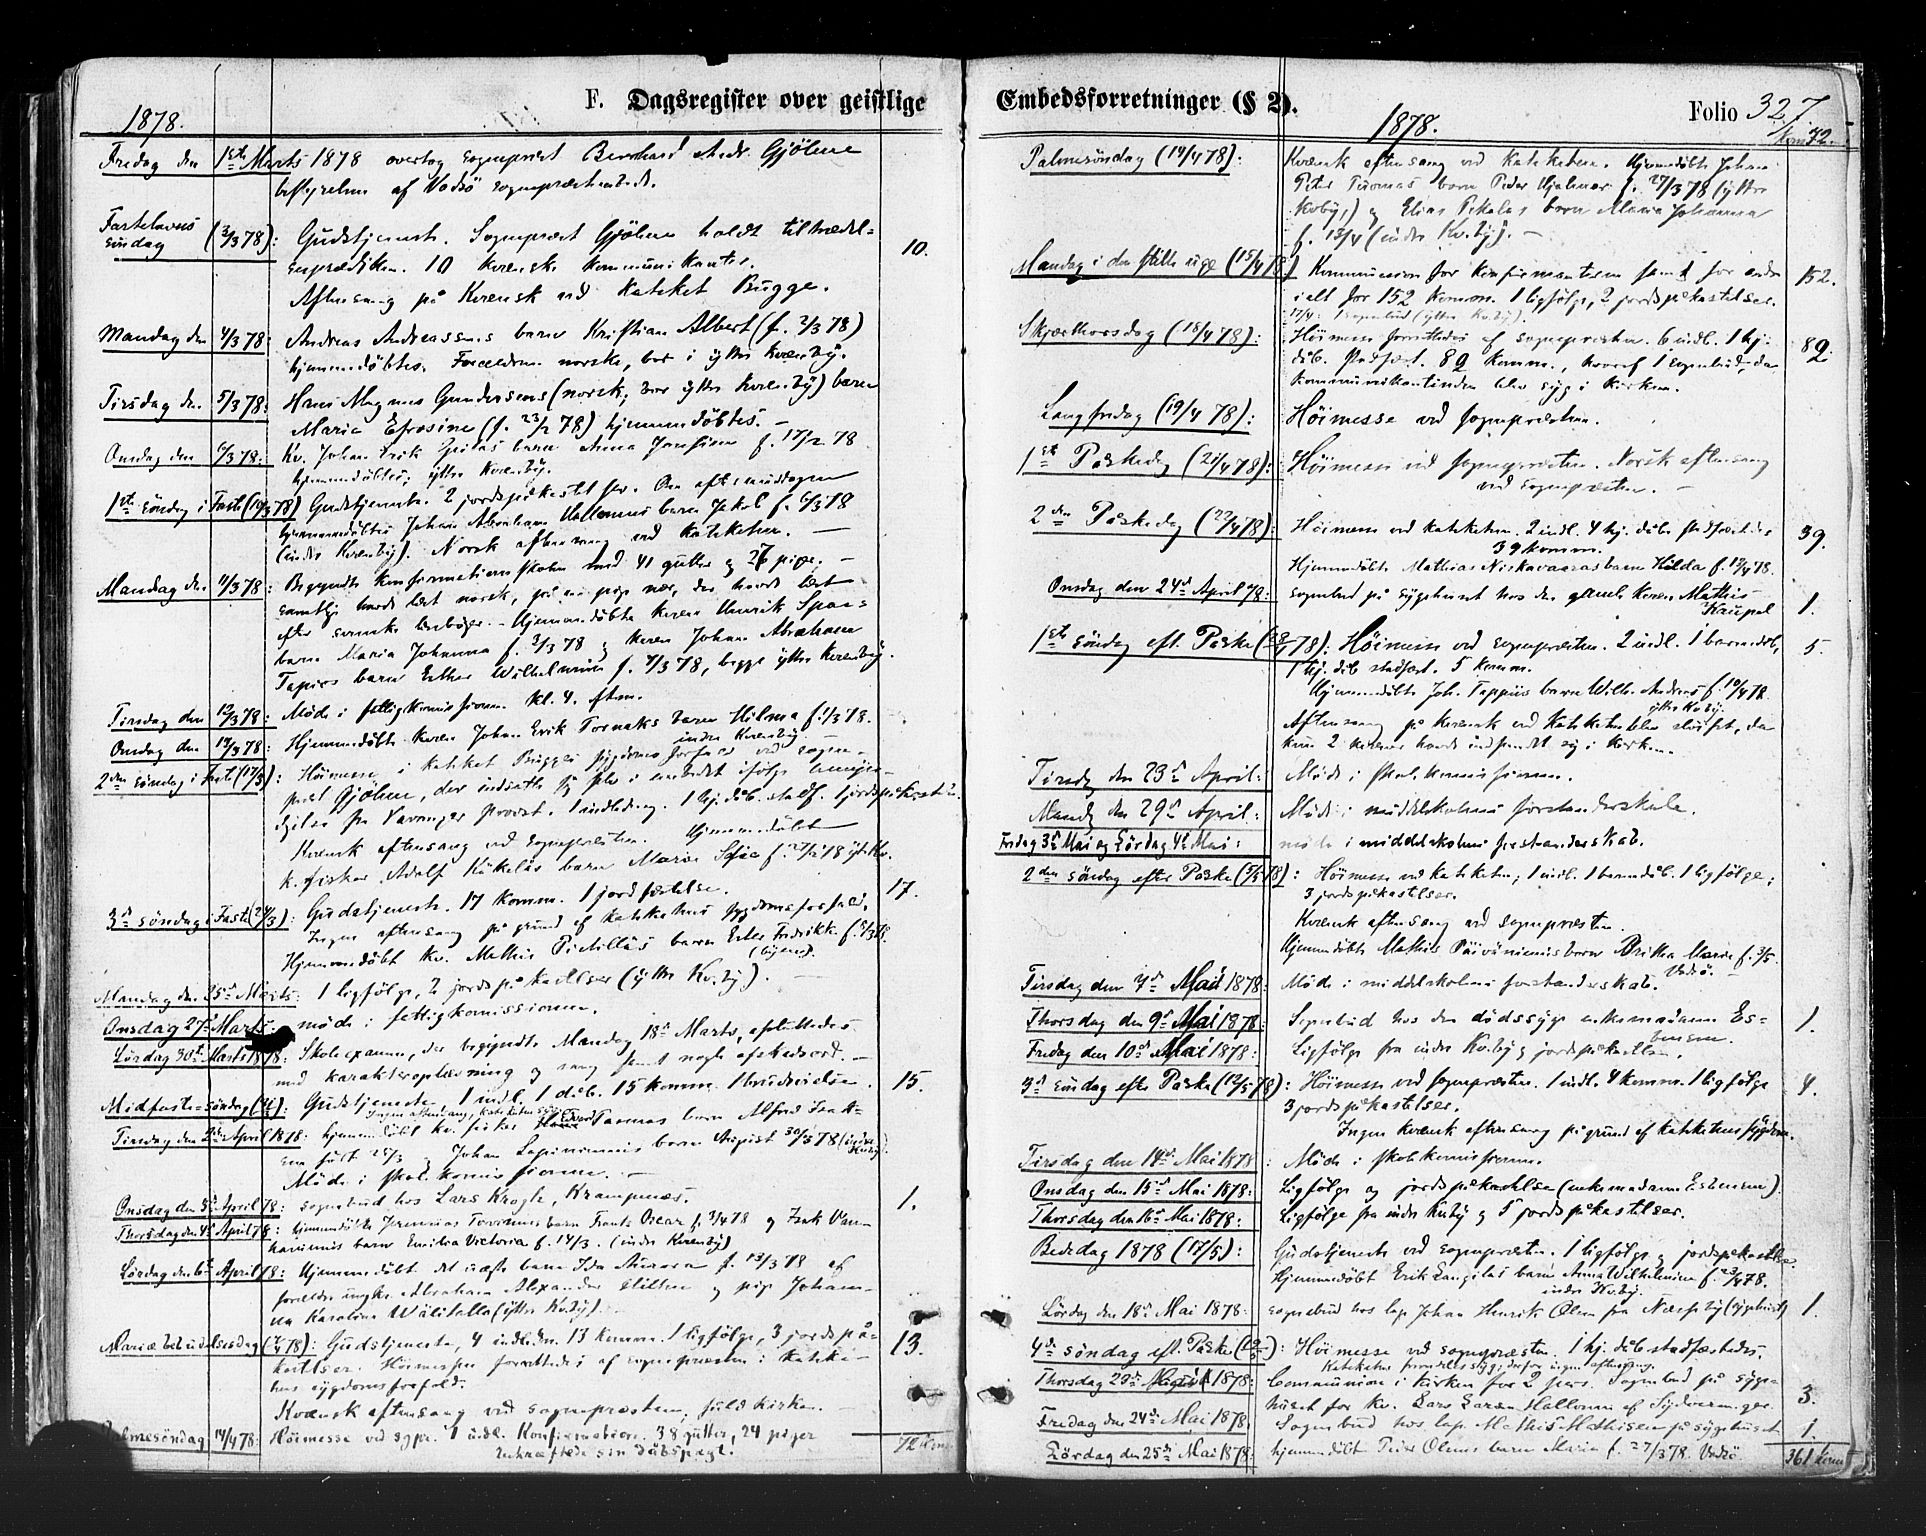 F. Dagsregister over geistlige
1878.
Fredag den 1ste Marts 1878 overtog sognepræst Bernhard Gjölme
bestyrelsen af Vadsö sognepræstembede.
Fastelavns söndag (3/3 78): Gudstjeneste. Sognepræst Gjölme holdt tiltrædel-
sesprædiken. 10 kvenske kommunikanter. 10.
Aftensang på kvensk ved kateket Bugge.
Mandag den 4/3 78: Andreas Andreassens barn Kristian Albert (f. 2/3 78)
hjemmedöbtes. Forældrene norske, bor i yttre kvenby.
Tirsdag den 5/3 78: Hans Magnus Gundersens (norsk, bor ytter kvenby) barn
Maria Efrosine (f. 23/2 78) hjemmedöbtes. –
Onsdag den 6/3 78: Kv. Johan Erik barn Anna Josefine f. 17/2 78
hjemmedöbtes, ytter kvenby.
1ste söndag i Faste (10/3 78) Gudstjeneste. 2 jordspåkastelser. Om eftermiddagen
hjemmedöbtes Johan Abraham barn Jakob f. 6/3 78
(indre kvenby). Norsk aftensang ved kateketen. –
Mandag den 11/3 78: Begyndte konfirmationsskolen med 41 gutter og 26 piger. –
samtlige havde læst norsk, på en pige nær, der havde læst
efter svenske lærebøger. – Hjemmedöbte kvæn Henrik
barn Maria Johanna f. 3/3 78 og kvæn Johan Abraham
Tapios barn Ester Wilhelmine f. 7/3 78, begge ytter kvenby.
Tirsdag den 12/3 78: Möde i fattigkommissionen kl. 4. eftm.
Onsdag den 13/3 78: Hjemmedöbte kvæn Johan Erik Tornaks barn Hilma f. 1/3 78.
indre kvenby.
2den söndag i Faste (17/3): Höimesse i kateket Bugges sygdoms forfald ved sogne-
præst Gjölme, der indsatte sig selv i embedet ifölge
fra Varanger provst. 1 indledning. 1 hj. döb. stadf. 1 jordspåkastelse.
Kvensk aftensang ved sognepræsten. Hjemmedöbt
k. fisker Adolf Kükeläs barn Maria Sofie f. 27/2 78 yt. kv.
3de söndag i Faste (24/3): Gudstjeneste. 17 komm. 1 jordfæstelse. 17.
Ingen aftensang på grund af kateketens sygdomsforfald.
Hjemmedöbt kv. Mathis barn Ester Fredrikke f. 5/3 78.
(byen).
Mandag den 25de Marts: 1 ligfölge, 2 jordspåkastelser (ytter Kv.by). –
Onsdag 27de Marts: möde i fattigkomissionen.
Lördag 30te Marts 1878: Skoleexamen, der begyndte Mandag 18de Marts, afsluttedes
med karakteroplæsning og sang samt nogle afskedsord. –
Midfaste-söndag: Gudstjeneste. 1 indl. 1 döb. 15 komm. 1 brudevielse. 15.
Ingen aftensang, kateketen syg.
Tirsdag den 2den April 1878: hjemmedöbt kv. fisker Edvard Tuomas barn Alfred Isak
födt og Johan Lapinniemis barn August 30/3 78 (indre Kvby).
Möde i skolekomissionen. –
Onsdag den 3de April 78: sognebud hos Lars Krogh, Krampenæs. 1.
Thorsdag den 4de April 78: hjemmedöbte Jeremias barn Frants Oscar f. 3/4 78 og Isak
barn Emilia Victoria f. 14/3. (indre kvenby)
Lördag den 6te April 78: Hjemmedöbt det uægte barn Ida Aurora f. 13/3 78 af
forældre ungk. Abraham Alexander og pige Johan-
na Karolina Wälitallo (ytter Kv.by).
Mariæ bebudelsesdag (7/4 78): Gudstjeneste, 4 indledn. 13 komm. 1 ligfölge, 3 jordspå- 13.
kastelser. Höimessen forrettedes af sognepræsten i kateke-
tens sygdomsforfald.
Kvænsk aftensang ved sognepræsten; fuld kirke. –
Palmesöndag 14/4 78: Höimesse ved sgpr. 1 indl. Konfirmation. 38 gutter, 24 piger
bekræftede sin döbspagt. 72 kom.
Embedsforretninger (§ 2).
1878.
Folio 327.
kom. 72.
Palmesöndag (14/4 78): Kvænsk aftensang ved kateketen. Hjemmedöbte Johan
Peter Tuomas barn Peder Hjalmar f. 27/3 78 (yttre
Kvby,) og Elias Pekalas barn Maria Johanna
f. 13/4 (indre Kv.by). –
Mandag i den stille uge (15/4 78) Kommunion for konfirmanterne samt for andre 152.
ialt for 152 komm. 1 ligfölge, 2 jordspåkastelser.
17/4: 1 sognebud (yttre Kv.by).
Skjærthorsdag (18/4 78): Höimesse forrettedes af sognepræsten. 6 indl. 1 hj- 89.
döb. stadfæst. 89 komm., hvoraf 1 sognebud, da
kommunikantinden blev syg i kirken.
Langfredag (19/4 78): Höimesse ved sognepræsten.
1ste Påskedag (21/4 78): Höimesse ved sognepræsten. Norsk aftensang
ved sognepræsten. –
2den Påskedag (22/4 78): Höimesse ved kateketen. 2 indl. 4 hj. döbte stadfæstedes 39.
39 komm.
Hjemmedöbte Mathias Niskavaaras barn Hilda f. 13/4 78.
Onsdag den 24de April 78: sognebud på sygehuset hos den gamle kvæn Mathis 1.
Kaupal
1ste söndag eft. Påske (28/4 78): Höimesse ved sognepræsten. 2 indl. 1 barnedöb, 5.
1 hj. döb stadfæst. 5 komm.
Hjemmedöbte Joh. Tappiis barn Wilh. Andreas f. 10/4 78.
ytter Kv.by.
Aftensang på kvensk ved kateketen blev slöifet, da
kun 2 kvæner havde indfundet sig i kirken.
Tirsdag den 23de April: Möde i skolekommissionen.
Mandag den 29de April: Möde i middelskolens forstanderskab.
Fredag 3de Mai og Lördag 4de Mai: möde i middelskolens forstanderskab.
2den söndag efter Påske (5/5 78): Höimesse ved kateketen; 1 indl. 1 barnedöb. 1 ligfölge;
3 jordspåkastelser.
Kvænsk aftensang ved sognepræsten.
Hjemmedöbte Mathis Päiväniemis barn Britha Marie f. 3/5.
Vadsö.
Tirsdag den 7de Mai 1878: Möde i middelskolens forstanderskab.
Thorsdag den 9de Mai 1878: Sognebud hos den dödssyge enkemadame Es- 1.
bensen.
Fredag den 10de Mai 1878: Ligfölge fra indre Kv.by og jordspåkastelse.
3de söndag efter Påske (12/5 78): Höimesse ved sognepræsten. 1 indl. 4 komm. 1 ligfölge 4.
3 jordspåkastelser.
Ingen kvænsk aftensang på grund af kateketens sygdom.
Tirsdag den 14de Mai 1878: Möde i skolekommissionen.
Onsdag den 15de Mai 1878: Ligfölge og jordspåkastelse (enkemadame Esbensen)
Thorsdag den 16de Mai 1878: Ligfölge fra indre Kvby og 5 jordspåkastelser.
Bededag 1878 (17/5): Gudstjeneste ved sognepræsten. 1 ligfölge og jordspåkastelse.
Hjemmedöbt Erik barn Anna Wilhelmine f. 23/4 78.
indre Kv.by.
Lördag den 18de Mai 1878: sognebud hos lap Johan Henrik Olsen fra Næsseby (sygehuset) 1.
4de söndag eft. Påske (19/5): Höimesse ved sognepræsten. 1 hj. döb stadfæstedes.
Kateketen fremdeles syg; derfor ingen aftensang.
Thorsdag 23de Mai 1878: Communion i kirken for 2 pers. Sognebud på syge-
huset for kv. Lars Larsen af Sydvaranger. 3.
Fredag den 24de Mai 1878. Sognebud hos lap Mathis Mathisen på sygehuset 1.
Lördag den 25de Mai 1878: hjemmedöbt Peder Olsens barn Maria f. 27/3 78. Vadsö 361 kom.